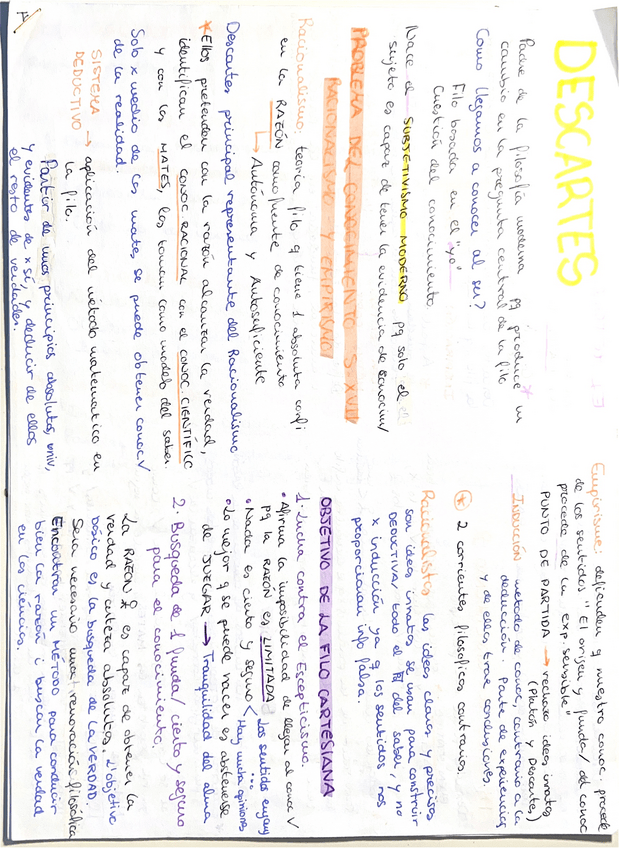 DESCARTES
Padre de la filosofía moderna pq produce un
cambio en la pregunta central de la filo
Como llegamos a conocer al ser?
Filo basada en el "yo"
Cuestión del conocimiento
Nace el SUBJETIVISMO MODERNO pq solo el
sujeto es capaz de tener la evidencia de
PROBLEMA DEL CONOCIMIENTO S.XVII
RACIONALISMO Y EMPIRISMO
Racionalismo: teoría filo q tiene 1 absoluta confi
en la RAZÓN como fuente de conocimiento
↳ Autónoma y Autosuficiente
Descartes principal representante del Racionalismo
*Ellos pretenden con la razón alcanzar la verdad,
identifican el CONOC RACIONAL con el CONOC CIENTÍFICO
y con las MATES, las toman como modelo del saber.
Solo x medio de las mate, se puede obtener conoc V
de la realidad.
SISTEMA
DEDUCTIVO → aplicación del método matemático en
la filo.
Partir de unos principios absolutos, univ,
y evidentes de x sí, y deducir de ellos
el resto de verdades.
Empirismo: defienden q nuestro conoc. procede
de los sentidos "El origen y funda/ del conoc
procede de la exp. sensible"
PUNTO DE PARTIDA → rechazo ideas innatas
(Platón y Descartes)
Inducción método de conoc, contrario a la
deducción. Parte de experiencias
y de ellas trae conclusiones.
* 2 corrientes filosóficas contrarias.
Racionalistas las ideas claras y precisas
son ideas innatas se usan para construir
DEDUCTIVA/ todo el del saber, y no
x inducción ya q los sentidos nos
proporcionan info falsa.
OBJETIVO DE LA FILO CARTESIANA
1. Lucha contra el Escepticismo.
• Afirma la imposibilidad de llegar al conoc V
pq la RAZÓN es LIMITADA
• Nada es cierto y seguro < Los sentidos engañan
Hay muchas opiniones
• Lo mejor q se puede hacer es abstenerse
de JUZGAR → Tranquilidad del alma
2. Búsqueda de 1 funda/ cierto y seguro
para el conocimiento
La RAZÓN es capaz de obtener la
verdad y certeza absolutas, L'objetivo
básico es la búsqueda de la VERDAD.
Sera necesario una renovación filosófica
Encontrar un MÉTODO para conducir
bien la razón i buscar la verdad
en las ciencias.